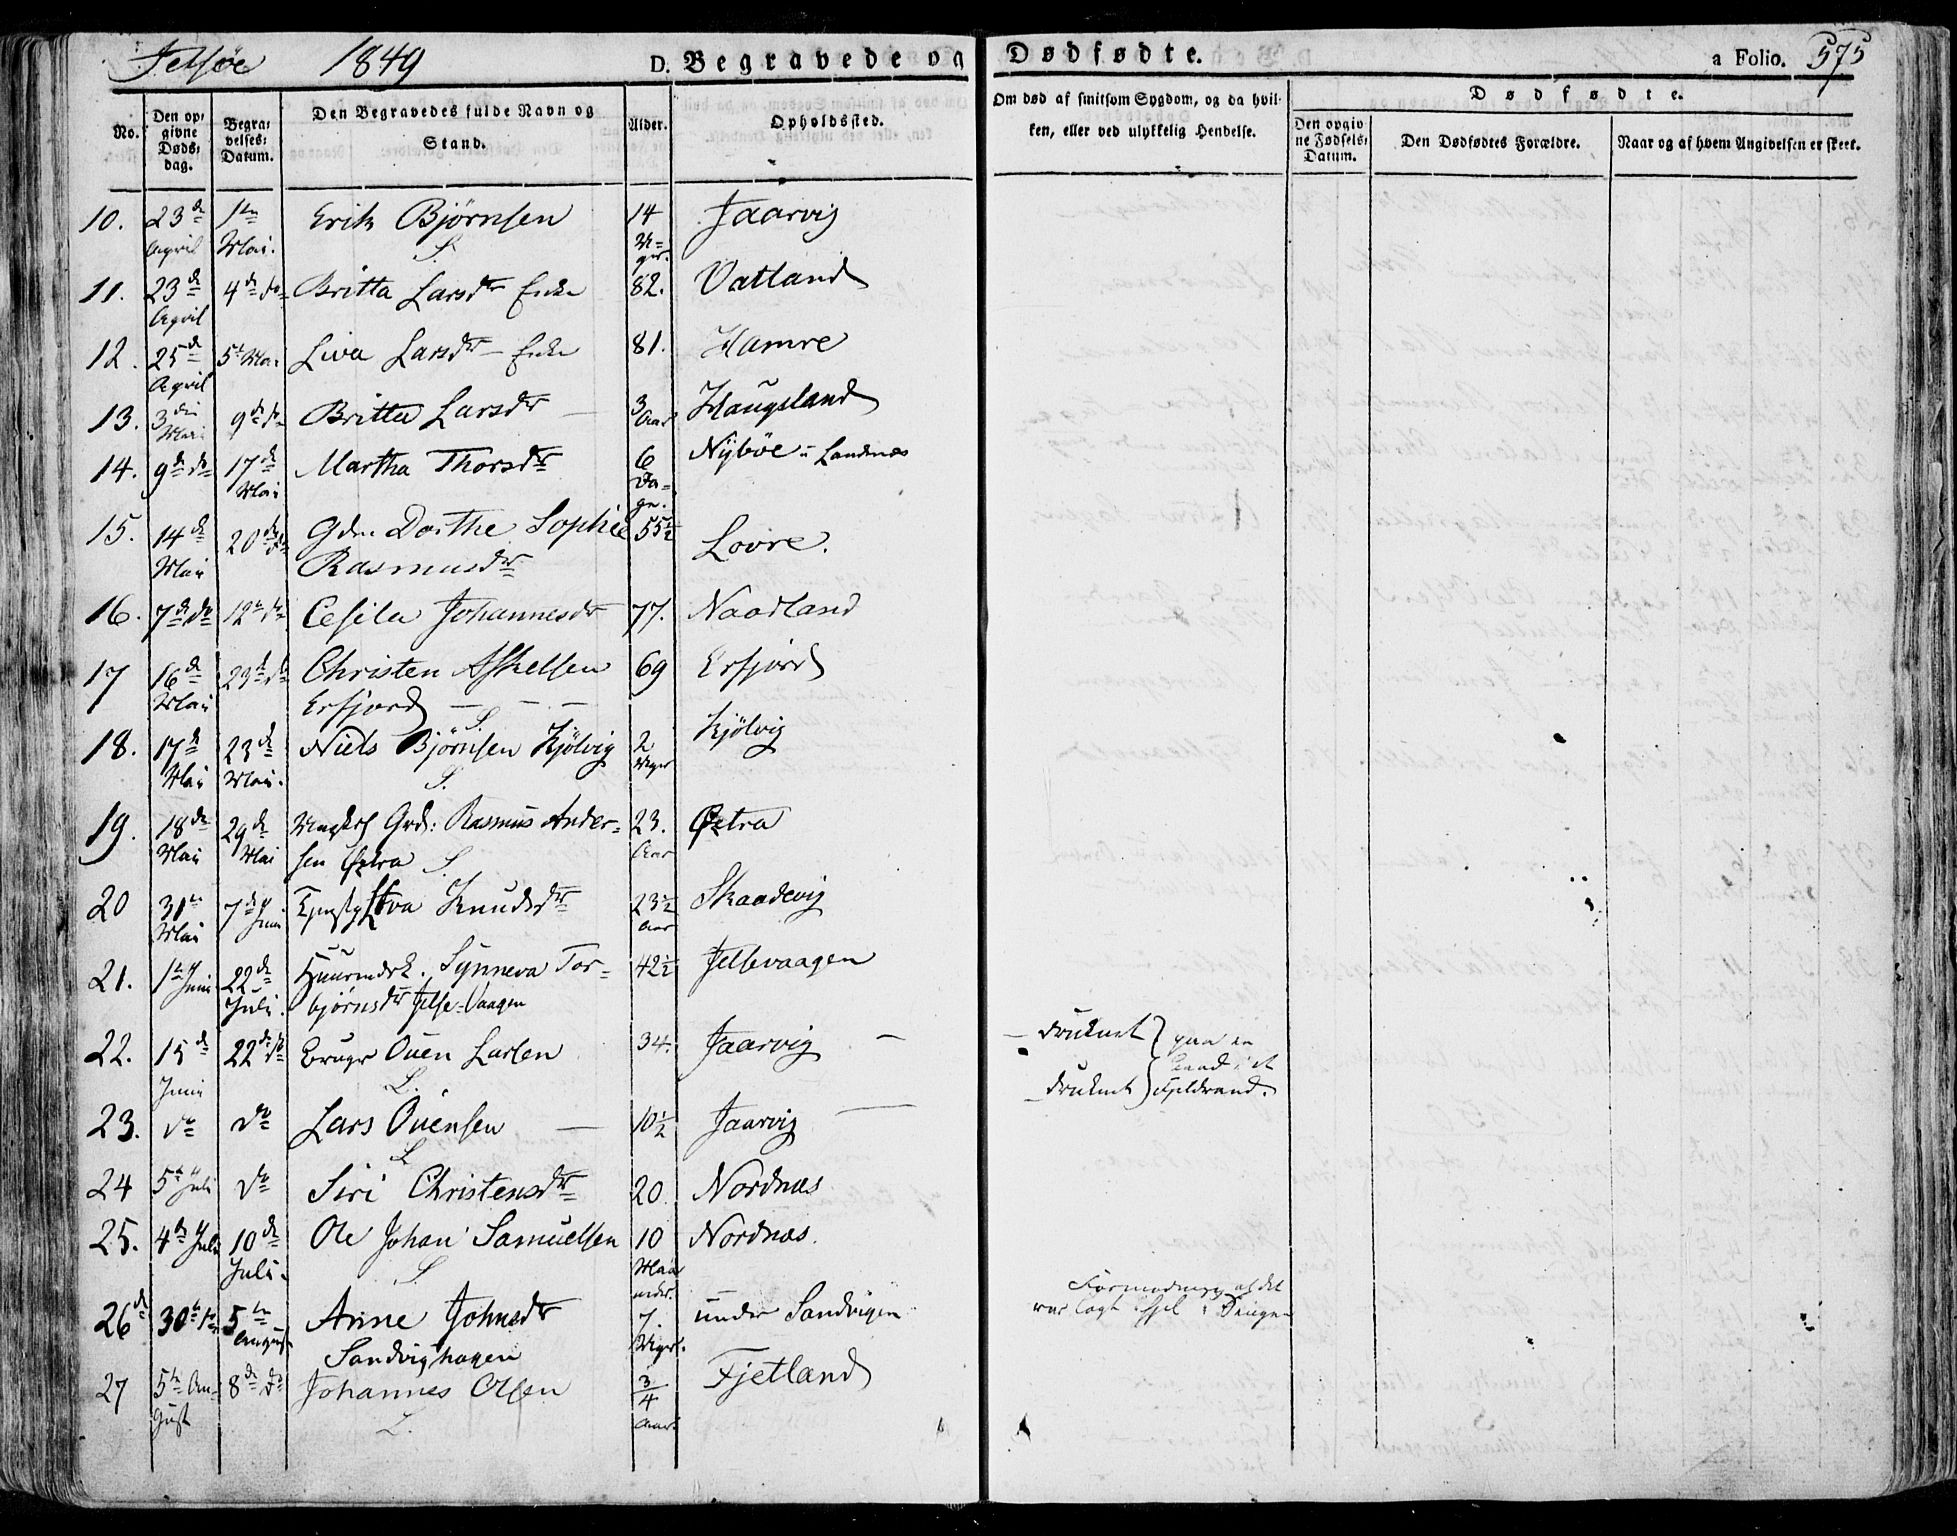 Jelsøe 1849 D. Begravede og Dødfødte. a Folio. 575
No. Den op- givne Døds- dag. Begra- velses- Datum. Den Begravedes fulde Navn og Stand. Alder. Opholdssted. Om død af smitsom Sygdom, og da hvil- ken, eller ved ulykkelig Hendelse. Dødfødte.
Den opgiv- ne Fødsels- Datum. Den Dødfødtes Forældre. Naar og af hvem Angivelsen er skeet.
10. 23de April 1ste Mai. Erik Bjørnsen 14 Uger. Jaarvig
S.
11. 23de April 4de do Britta Larsdr Enke 82. Vatland
12. 25de April 5te Mai Liva Larsdr – Enke 81. Hamre
13. 3die Mai 9de do Britta Larsdr – 3 Aar Haugsland
14. 9de do 17de Mai Martha Thorsdr 6 Da- ge. Nybøe u Landnæs
15. 14de Mai 20de do Gdm. Dorthe Sophie 55½ Lovre.
Rasmusdr
16. 7de do 12te do Cesila Johannesdr 77. Naadland
17 16de Mai 23de do Christen Askelsen 69 Erfjord
Erfjord – – –
S.
18. 17de Mai 23de Mai. Niels Bjørnsen Kjølvig 2 Uger Kjølvig
S.
19. 18de Mai 29de Mai Ungkrl Grd: Rasmus Ander- 23. Aar Østra
sen Østra S.
20 31te Mai 7de Juni Tjenstp Eva Knudsdr 23½ Aar Skaadevig
21. 1ste Juni 22de Juli. Huusmdsk. Synneva Tor- 42½ Jelsevaagen
bjørnsdr Jelse-Vaagen
22. 15de Juni 22de do Bruger Ouen Larsen 34. Jaarvig – – druknet } paa en
L. Baad i et
23. do do Lars Ouensen – 10½ Jaarvig – – druknet } Fjeldvand.
L.
24 5te Juli do Siri Christensdr 20. Nordnæs
25. 4de Juli 10de Juli. Ole Johan Samuelsen 10 Maa- neder. Nordnæs.
S.
26de 30te do 5te August Anne Johnsdr 7. Uger. under Sandvigen Formodning at det
Sandvighagen var lagt ihjel i Sengen
27 5te Au- gust 8de do Johannes Olsen ¾ Aar. Fjetland
L.